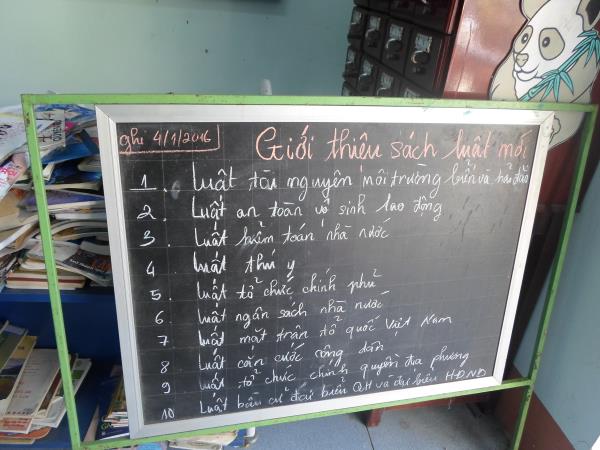 ghi 4/1/2016
Giới thiệu sách luật mới
1. Luật tài nguyên môi trường biển và hải đảo
2. Luật an toàn vệ sinh lao động
3. Luật kiểm toán nhà nước
4 Luật thú y
5. Luật tổ chức chính phủ
6 Luật ngân sách nhà nước
7 Luật mặt trận tổ quốc Việt Nam
8 Luật căn cước công dân
9 Luật tổ chức chính quyền địa phương
10 Luật bầu cử đại biểu QH và đại biểu HĐND